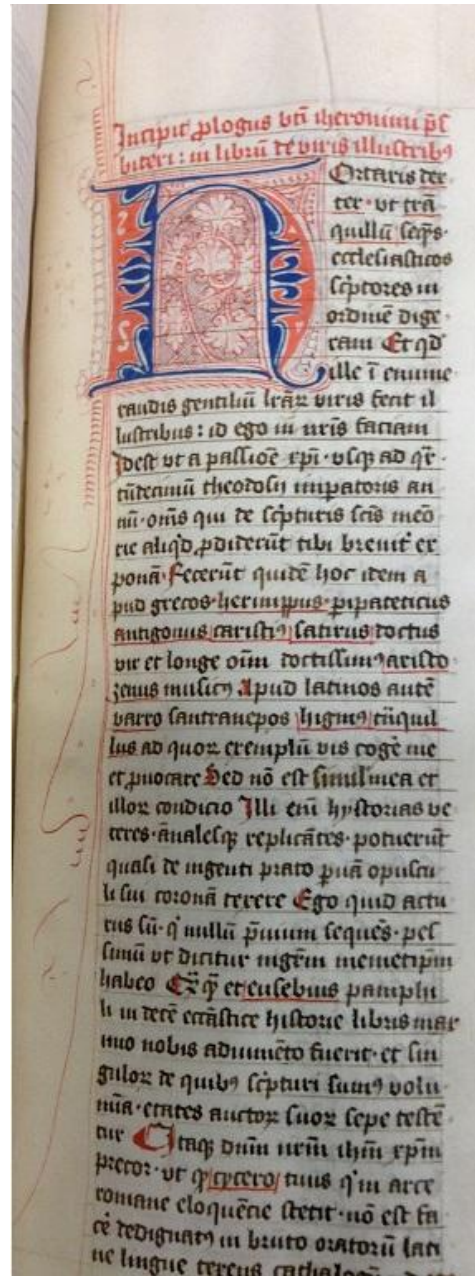 Incipit ꝓlogus bt̄i iheronimi p̄s
biteri : in librū de viris illustribꝰ
Ortaris dex
ter · vt trā
quillū seq̄ns ·
ecclesiasticos
sc̓ptores in
ordinē dige ·
ram Et qd̓
ille ī enume
randis gentiliū lr̄aꝝ viris fecit il
lustribus : id ego in nr̄is faciam
Idest vt a passiōe xp̄i · vsqꝫ ad qr̄ ·
tūdecimū theodosij impatoris an
nū · om̄s qui de sc̓pturis sc̄is meō
rie aliq̓d ꝓdiderūt tibi breuit̓ ex
ponā · Fecerūt quidē hoc idem a
pud grecos · hermippus · pipateticus
antigonus caristiꝰ satirus doctus
vir et longe oīm doctissimꝰ aristo
xenus musicꝰ Apud latinos autē
varro santranepos higinꝰ trāquil
lus ad quoꝝ exemplū vis cogē me
et ꝓuocare Sed nō est simil̓ mea et
illoꝝ condicio Illi em̄ hystorias ve
teres · ānalesqꝫ replicātes · potuerūt
quasi de ingenti prato ꝑuā opuscu
li sui coronā texere Ego quid actu
rus sū · q̓ nullū p̄uium sequēs · pes
simū vt dicitur mgr̄m memetip̄m
habeo et eusebius pamphi
li in decē eccāstice historie libris max
imo nobis adiumēto fuerit · et sin
guloꝝ de quibꝰ sc̓pturi sumꝰ volu
mīa · etates auctoꝝ suoꝝ sepe testē
tur Itaqꝫ dn̄m nr̄m ihm̄ xp̄m
precor · vt cycero tuus q̓ in arce
romane eloquēcie stetit · nō est fa
cē dedignatꝰ in bruto oratorū lati
ne lingue texens